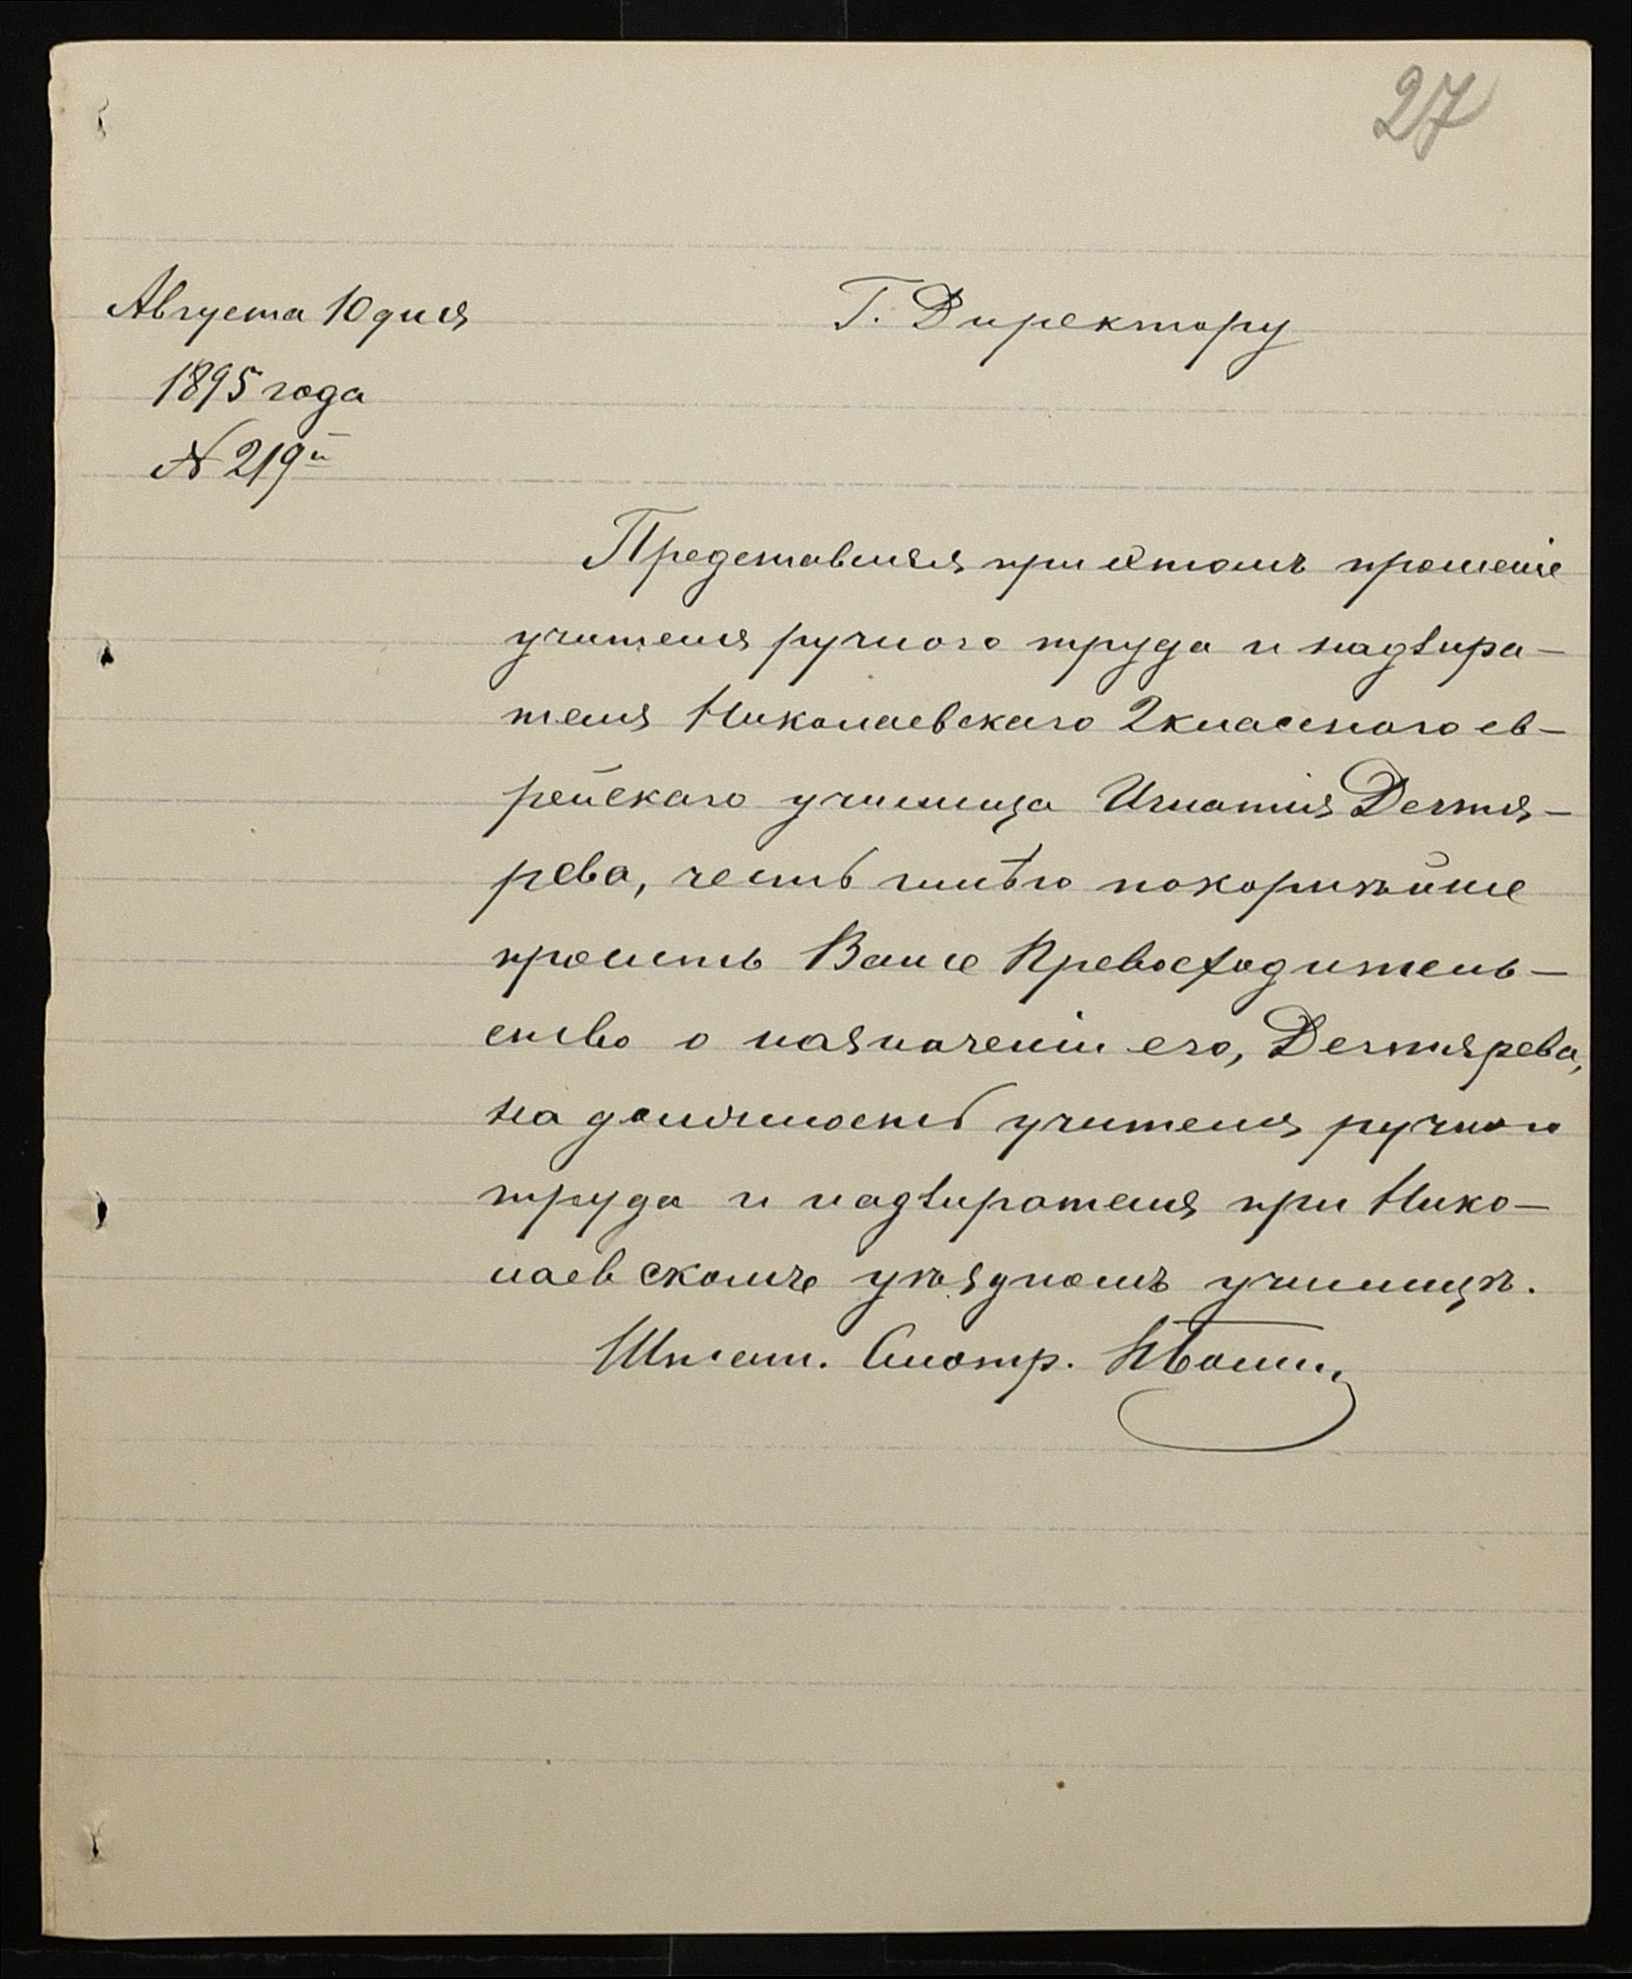 27
Августа 10 дня
1895 года
№ 219й
Г. Директору
Представляя при этомъ прошеніе
учителя ручного труда и надзира-
теля Николаевскаго 2классного ев-
рейскаго училища Игнатія Дегтя-
рева, честь имѣю покорнѣйше
просить Ваше Превосходитель-
ство о назначеніи его, Дегтярева,
на должность учителя ручного
труда и надзирателя при Нико-
лаевскомъ уѣздномъ училищѣ.
Штат. Смотр.